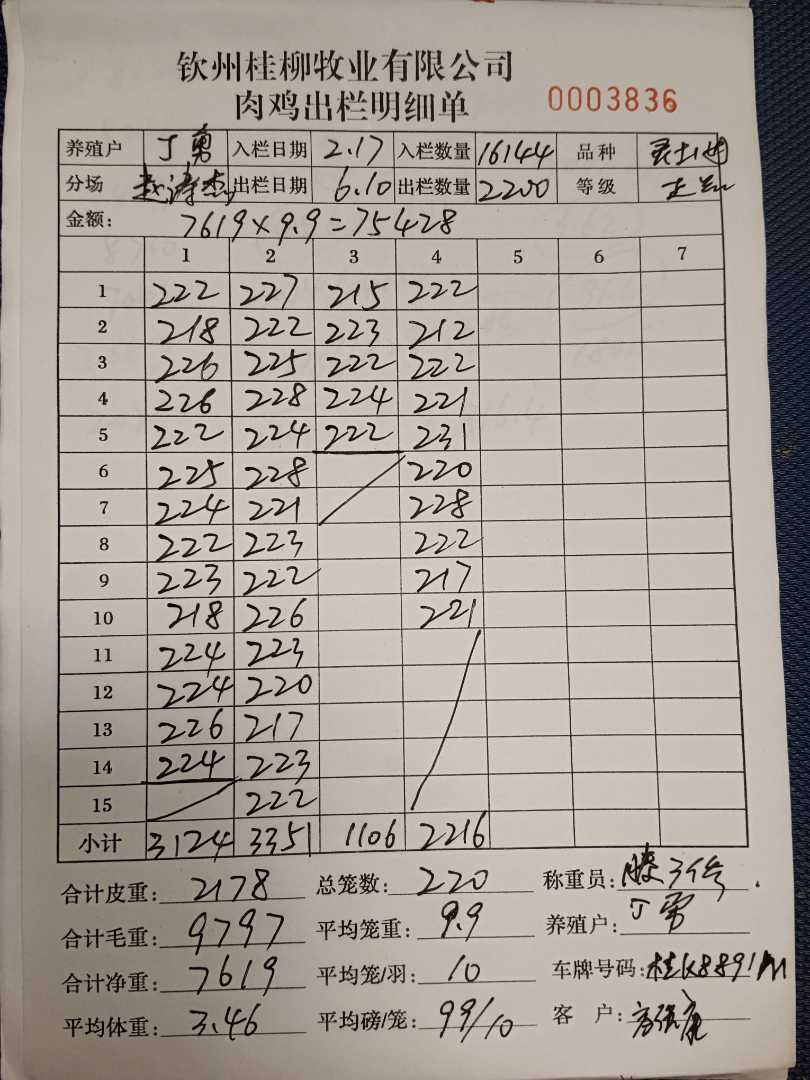 钦州桂柳牧业有限公司
肉鸡出栏明细单 0003836
养殖户 丁勇 入栏日期 2.17 入栏数量 16144 品种
分场 赵涛杰 出栏日期 6.10 出栏数量 2200 等级
金额: 7619×9.9=75428
1 2 3 4 5 6 7
1 222 227 215 222
2 218 222 223 212
3 226 225 222 222
4 226 228 224 221
5 222 224 222 231
6 225 228 220
7 224 221 228
8 222 223 222
9 223 222 217
10 218 226 221
11 224 223
12 224 220
13 226 217
14 224 223
15 222
小计 3124 3351 1106 2216
合计皮重: 2178 总笼数: 220 称重员:
合计毛重: 9797 平均笼重: 9.9 养殖户: 丁勇
合计净重: 7619 平均笼/羽: 10 车牌号码: 桂K8891M
平均体重: 3.46 平均磅/笼: 99/10 客户: